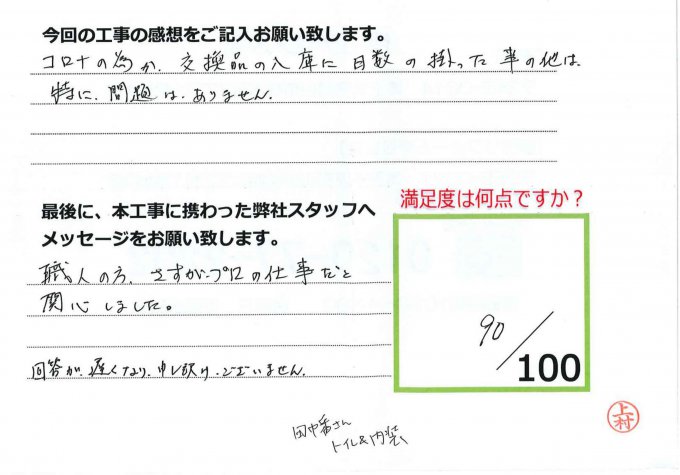 今回の工事の感想をご記入お願い致します。
コロナの為か、交換品の入庫に日数の掛った事の他は、
特に、問題は、ありません。
最後に、本工事に携わった弊社スタッフへ
メッセージをお願い致します。
満足度は何点ですか？
職人の方、さすがプロの仕事だと
関心しました。
90/100
回答が、遅くなり、申し訳け、ございません。
さん
トイレ&内装
上村